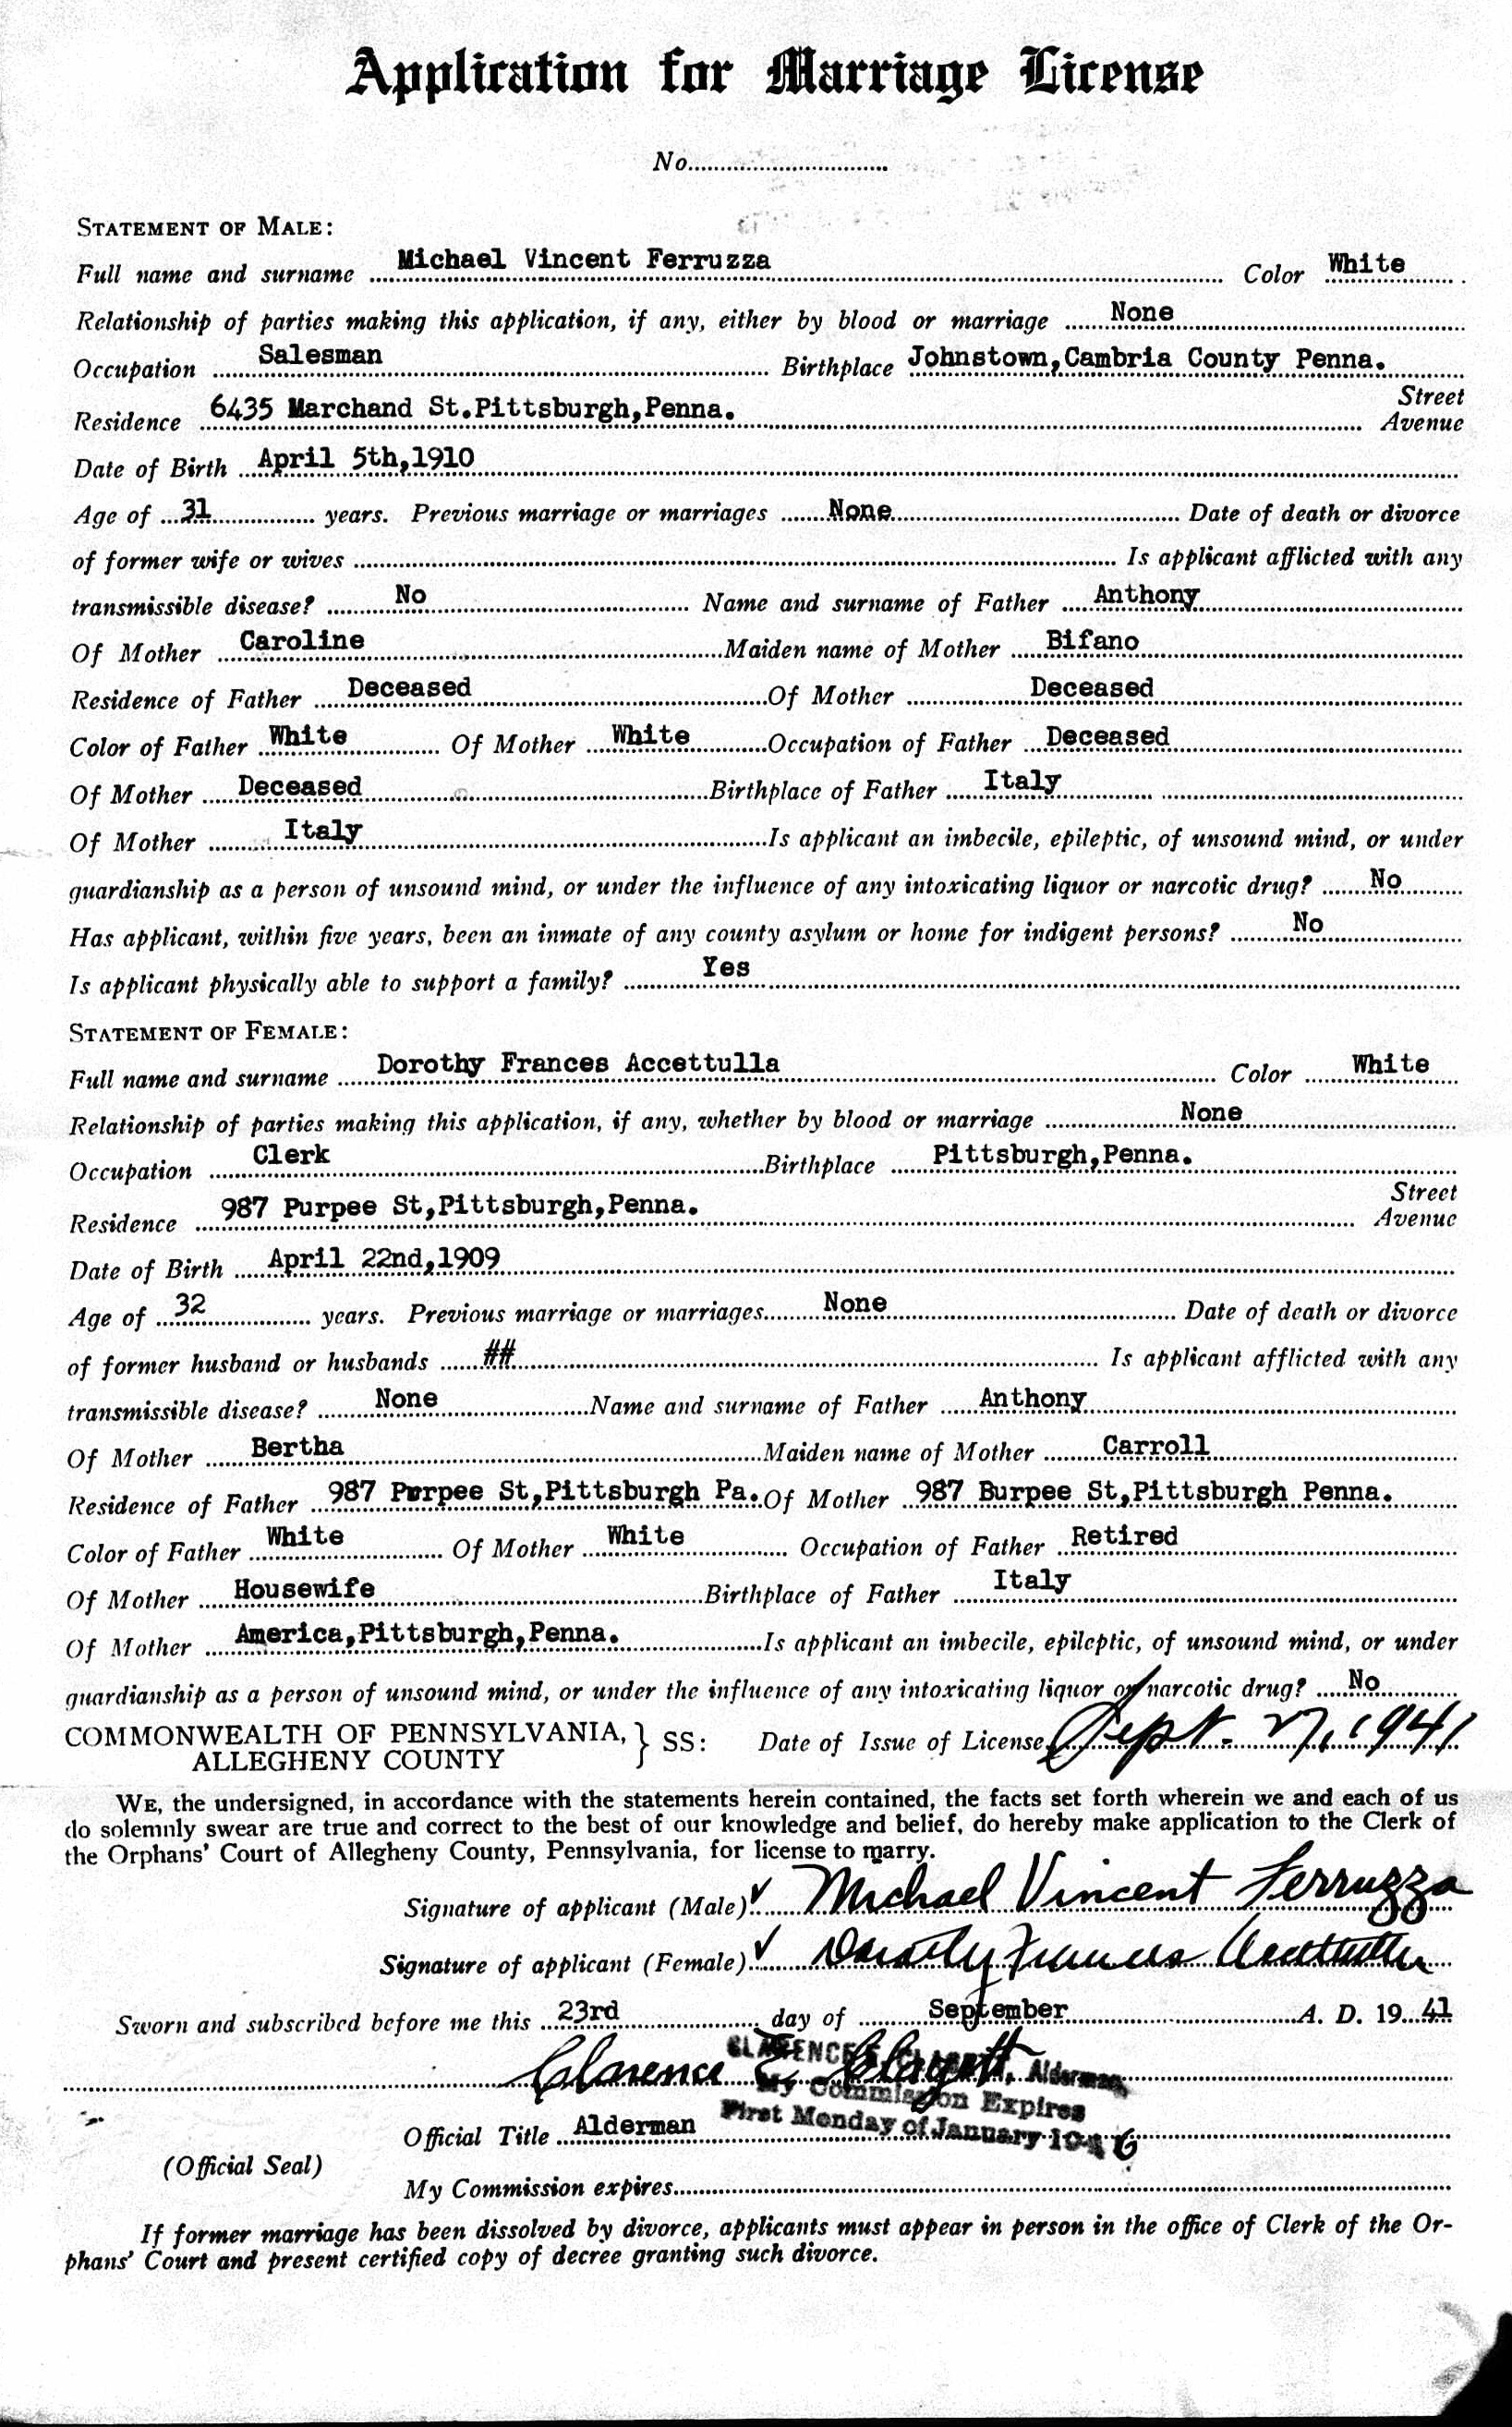 Application for Marriage License
No..............................
STATEMENT OF MALE:
Full name and surname Michael Vincent Ferruzza Color White
Relationship of parties making this application, if any, either by blood or marriage None
Occupation Salesman Birthplace Johnstown,Cambria County Penna.
Residence 6435 Marchand St.Pittsburgh,Penna. Street Avenue
Date of Birth April 5th,1910
Age of 31 years. Previous marriage or marriages None Date of death or divorce
of former wife or wives Is applicant afflicted with any
transmissible disease? No Name and surname of Father Anthony
Of Mother Caroline Maiden name of Mother Bifano
Residence of Father Deceased Of Mother Deceased
Color of Father White Of Mother White Occupation of Father Deceased
Of Mother Deceased Birthplace of Father Italy
Of Mother Italy Is applicant an imbecile, epileptic, of unsound mind, or under
guardianship as a person of unsound mind, or under the influence of any intoxicating liquor or narcotic drug? No
Has applicant, within five years, been an inmate of any county asylum or home for indigent persons? No
Is applicant physically able to support a family? Yes
STATEMENT OF FEMALE:
Full name and surname Dorothy Frances Accettulla Color White
Relationship of parties making this application, if any, whether by blood or marriage None
Occupation Clerk Birthplace Pittsburgh,Penna.
Residence 987 Purpee St,Pittsburgh,Penna. Street Avenue
Date of Birth April 22nd,1909
Age of 32 years. Previous marriage or marriages None Date of death or divorce
of former husband or husbands ## Is applicant afflicted with any
transmissible disease? None Name and surname of Father Anthony
Of Mother Bertha Maiden name of Mother Carroll
Residence of Father 987 Purpee St,Pittsburgh Pa. Of Mother 987 Burpee St,Pittsburgh Penna.
Color of Father White Of Mother White Occupation of Father Retired
Of Mother Housewife Birthplace of Father Italy
Of Mother America,Pittsburgh,Penna. Is applicant an imbecile, epileptic, of unsound mind, or under
guardianship as a person of unsound mind, or under the influence of any intoxicating liquor or narcotic drug? No
COMMONWEALTH OF PENNSYLVANIA, ALLEGHENY COUNTY } SS: Date of Issue of License Sept. 27, 1941
WE, the undersigned, in accordance with the statements herein contained, the facts set forth wherein we and each of us
do solemnly swear are true and correct to the best of our knowledge and belief, do hereby make application to the Clerk of
the Orphans' Court of Allegheny County, Pennsylvania, for license to marry.
Signature of applicant (Male) ✓ Michael Vincent Ferruzza
Signature of applicant (Female) ✓ Dorothy Frances Accettulla
Sworn and subscribed before me this 23rd day of September A. D. 19 41
Clarence E.
CLARENCE E. Alderman
My Commission Expires
First Monday of January 1946
Official Title Alderman
(Official Seal)
My Commission expires
If former marriage has been dissolved by divorce, applicants must appear in person in the office of Clerk of the Or-
phans' Court and present certified copy of decree granting such divorce.